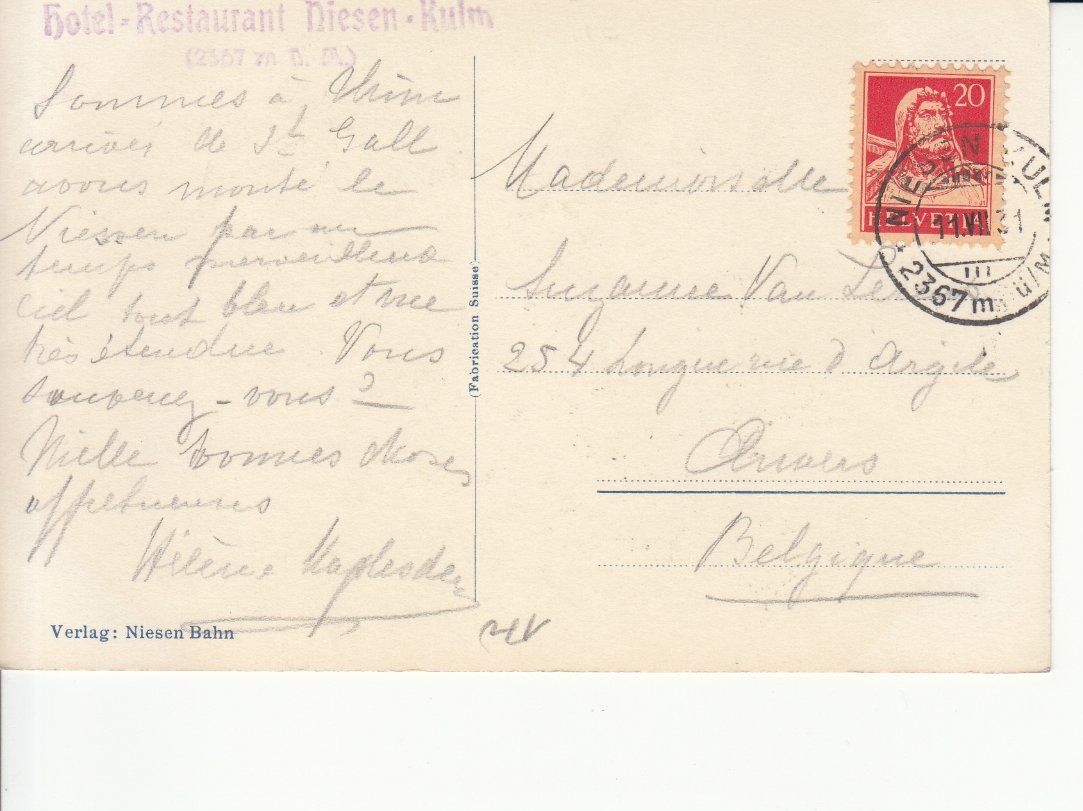 Hotel-Restaurant Niesen-Kulm
(2367 m ü. M.)
Sommes à
arrivés de St Gall
avons monté le
Niessen par un
temps merveilleux
ciel tout bleu et vue
très étendue. Vous
souvenez-vous?
Mille bonnes choses
affectueuses
Hélène
Verlag: Niesen Bahn
(Fabrication Suisse)
20
HELVETIA
NIESEN KULM
11.VII.31
2367 m ü/M.
Mademoiselle
Suzanne Van
254 Longue rue d'Argile
Anvers
Belgique